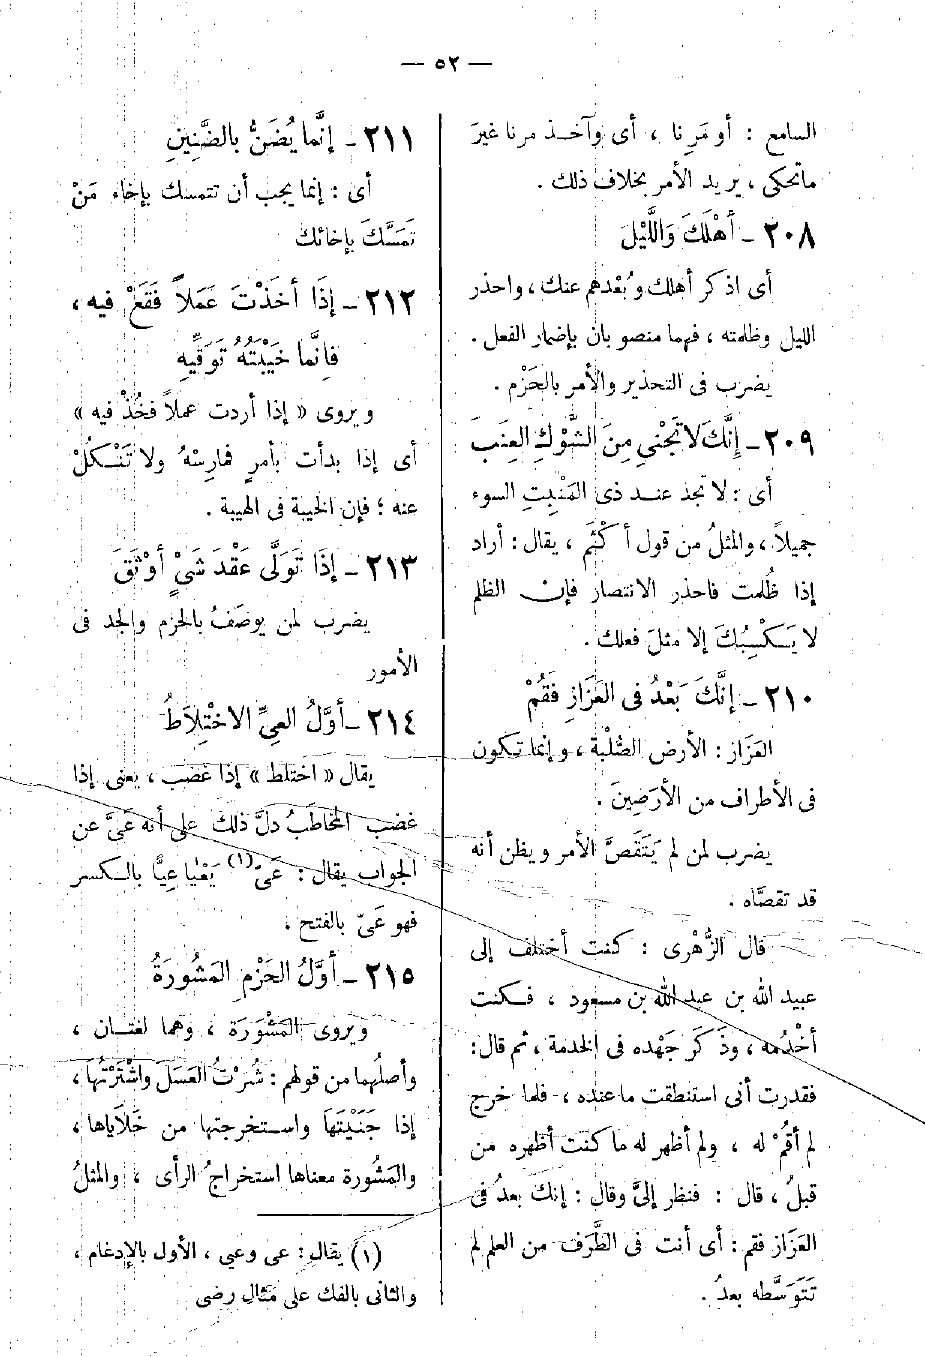 — ٥٢ —
السامع : أو مَرِنا ، أى وآخــذ مرنا غيرَ
ماتحكى ، يريد الأمر بخلاف ذلك .
٢٠٨ – أَهْلَكَ وَاللَّيْلَ
أى اذكر أهلك وبُعْدهم عنك ، واحذر
الليل وظلمته ، فهما منصوبان بإضمار الفعل .
يضرب فى التحذير والأمر بالحَزْم .
٢٠٩ – إِنَّكَ لاَ تَجْنِي مِنَ الشَّوْكِ العِنَبَ
أى : لا تجد عنــد ذى المَنْبِتِ السوء
جميلاً ، والمثلُ من قول أكْثَمَ ، يقال : أراد
إذا ظُلمت فاحذر الانتصار فإن الظلم
لا يَكْسِبُكَ إلا مثلَ فعلك .
٢١٠ – إنَّكَ بَعْدُ فى العَزَازِ فَقُمْ
العَزَاز : الأرض الصُّلْبة ، وإنما تكون
فى الأطراف من الأرَضِينَ .
يضرب لمن لم يَتَقَصَّ الأمر ويظن أنه
قد تقصَّاه .
قال الزُّهْرى : كنت أختلف إلى
عبيد الله بن عبد الله بن مسعود ، فكنت
أخْدُمه ، وذَكَرَ جَهْده فى الخدمة ، ثم قال :
فقدرت أنى استنطقت ما عنده ، فلما خرج
لم أقُمْ له ، ولم أظهر له ما كنت أظهره من
قبلُ ، قال : فنظر إلىَّ وقال : إنك بعدُ فى
العَزَاز فقم : أى أنت فى الطَّرَف من العلم لم
تَتَوَسَّطه بعدُ .
٢١١ – إنَّما يُضَنُّ بالضَّنِينِ
أى : إنما يجب أن تتمسك بإخاء مَنْ
تَمَسَّكَ بإخائك
٢١٢ – إذَا أخَذْتَ عَمَلاً فَقَعْ فيه ،
فإنَّما خَيْبَتُهُ تَوَقِّيهِ
ويروى « إذا أردت عملاً فخُذْ فيه »
أى إذا بدأت بأمرٍ فمارِسْهُ ولا تَنْكُلْ
عنه ؛ فإن الخيبة فى الهيبة .
٢١٣ – إذَا تَوَلَّى عَقْدَ شَىْءٍ أوْثَقَ
يضرب لمن يوصَفُ بالحزم والجد فى
الأمور
٢١٤ – أوَّلُ العِىِّ الاخْتِلاَطُ
يقال « اختلط » إذا غضب ، يعنى إذا
غضب المخاطَبُ دلَّ ذلك على أنه عَىَّ عن
الجواب يقال : عَىّ (١) يَعْيَا عِيًّا بالكسر
فهو عَىّ بالفتح .
٢١٥ – أوَّلُ الحَزْمِ المَشُورَةُ
ويروى المَشْوَرَة ، وهما لغتــان ،
وأصلُهما من قولهم : شُرْتُ العَسَلَ واشْتَرْتُهَا ،
إذا جَنَيْتَهَا واستخرجتها من خَلَاياها ،
والمَشُورة معناها استخراجُ الرأى ، والمثلُ
(١) يقال : عى وعيى ، الأول بالإدغام ،
والثانى بالفك على مثال رضى